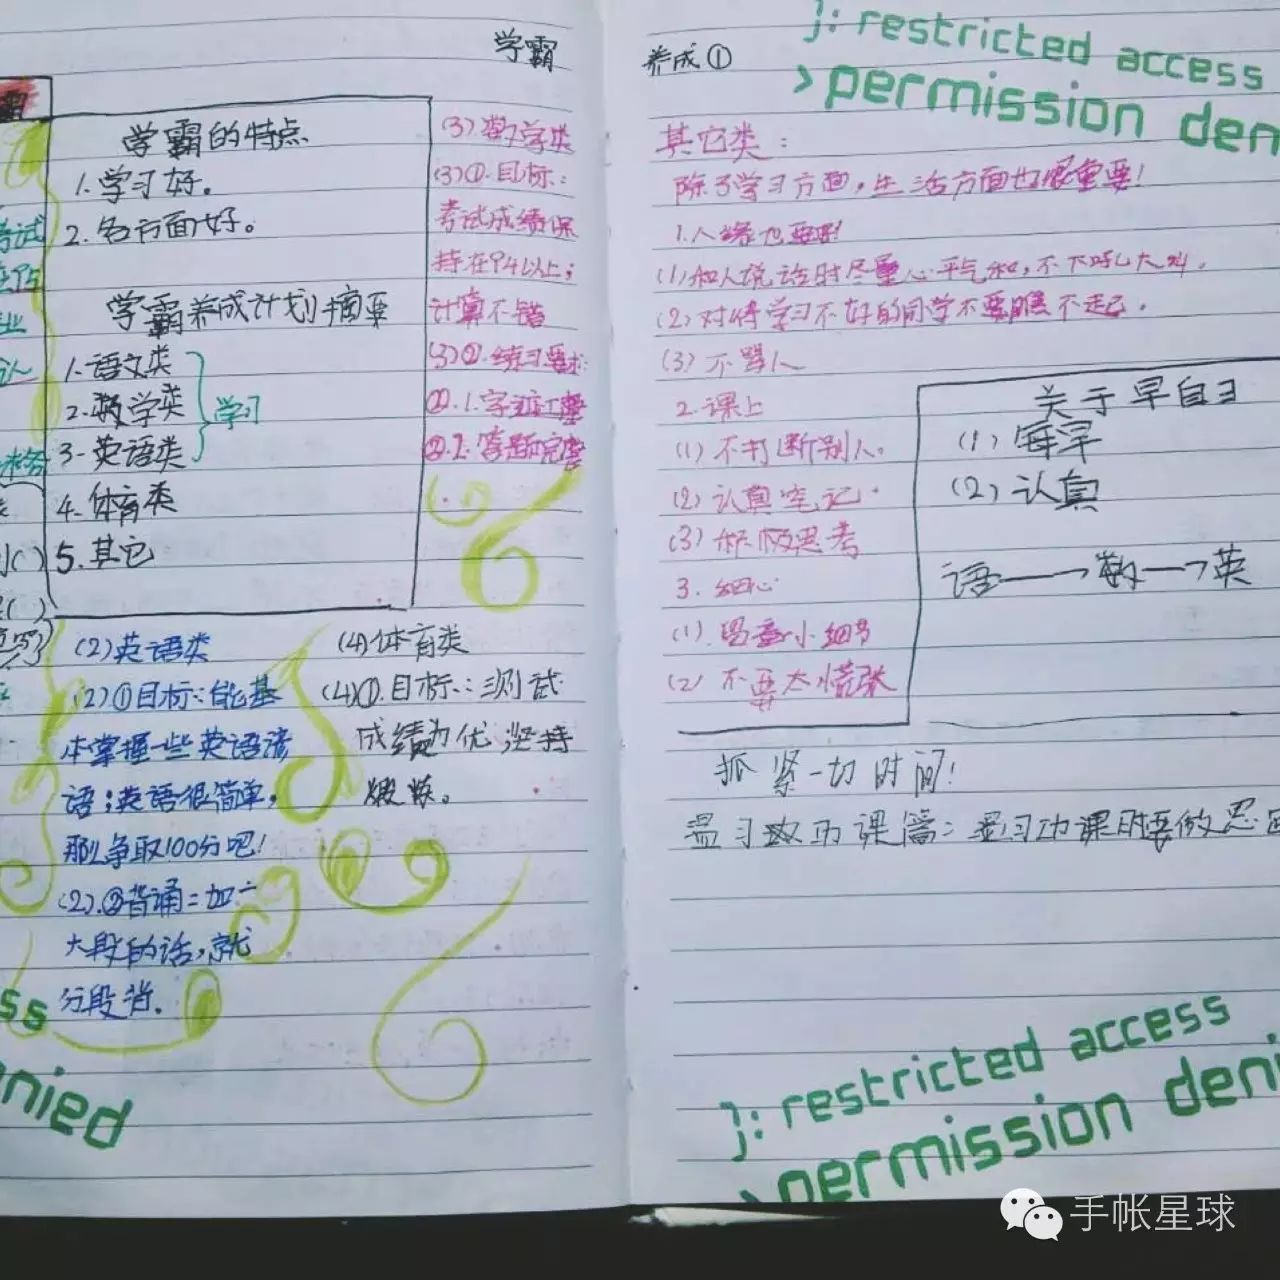 学霸
学霸的特点
1.学习好。
2.各方面好。
学霸养成计划摘要
1.语文类
2.数学类
3.英语类
学习
4.体育类
5.其它
(3)数学类
(3)①.目标:
考试成绩保
持在94以上;
计算不错
(3)②.练习要求:
②.1.字迹工整
②.2.答题完整
(2)英语类
(2)①目标:能基
本掌握一些英语
语;英语很简单,
那么争取100分吧!
(2).②背诵:如
大段的话,就
分段背.
(4)体育类
(4)①.目标:测试
成绩为优 坚持
锻炼。
ss
nied
养成①
}: restricted access
>permission den
其它类:
除了学习方面,生活方面也很重要!
1.人缘也要
(1)和人说话时尽量心平气和,不大呼大叫.
(2)对待学习不好的同学不要瞧不起.
(3)不骂人
2.课上
(1)不打断别人.
(2)认真笔记.
(3)积极思考
3.细心
(1).留意小细节
(2 不要太慌张
关于早自习
(1)每早
(2)认真
语→数→英
抓紧一切时间!
温习功课篇:温习功课时要做思
}: restricted access
>permission deni
手帐星球